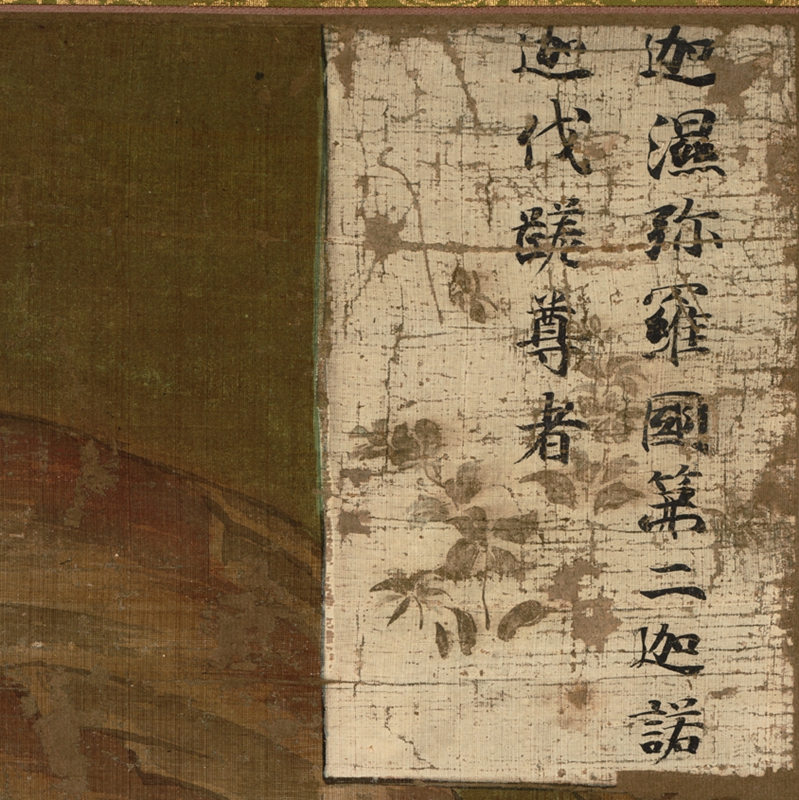 迦濕弥羅國第二迦諾
迦伐蹉尊者